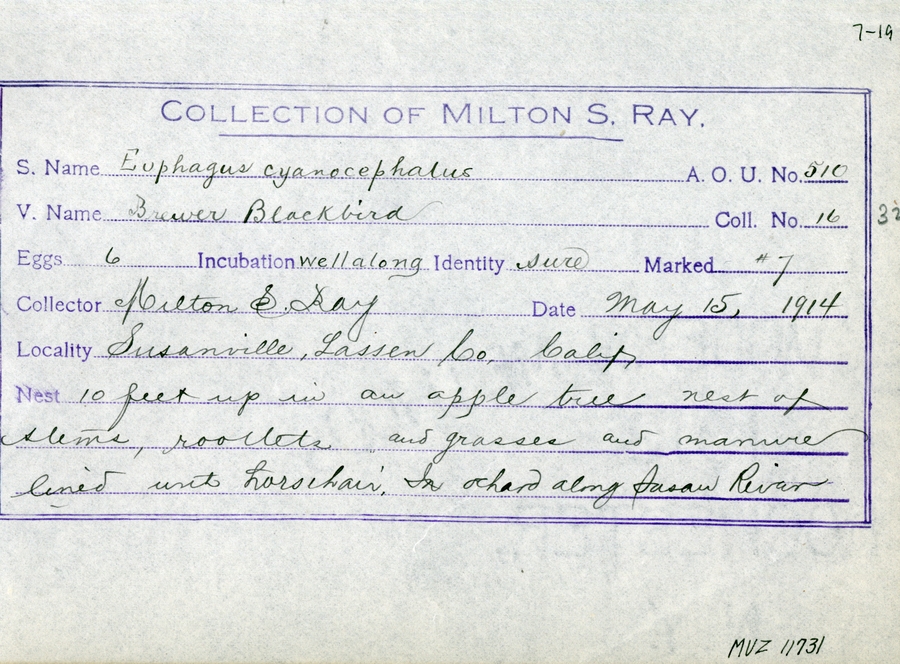 7-19
COLLECTION OF MILTON S. RAY.
S. Name Euphagus cyanocephalus A. O. U. No. 510
V. Name Brewer Blackbird Coll. No. 16
Eggs 6 Incubation well along Identity sure Marked #7
Collector Milton S. Ray Date May 15, 1914
Locality Susanville, Lassen Co, Calif,
Nest 10 feet up in an apple tree nest of
stems, rootlets and grasses and manure
lined with horsehair. In ochard along Susan River
MVZ 11731